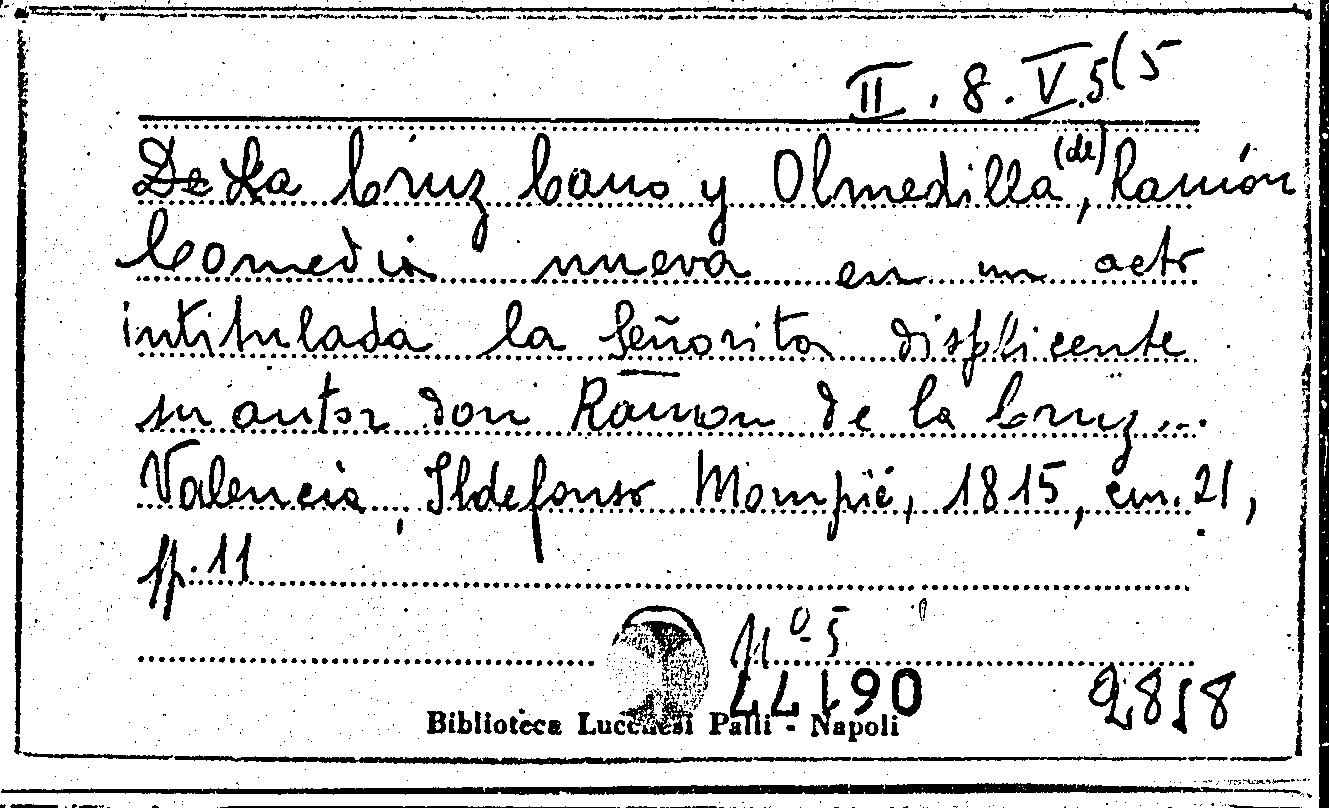 II. 8. V.5(5
De La Cruz Cano y Olmedilla (de), Ramón
Comedia nueva en un acto
intitulada la Señorita displicente
su autor don Ramon de la Cruz...
Valencia, Ildefonso Mompié, 1815, cm. 21,
pp. 11
Nº 5
Biblioteca Lucchesi Palli - Napoli
2818